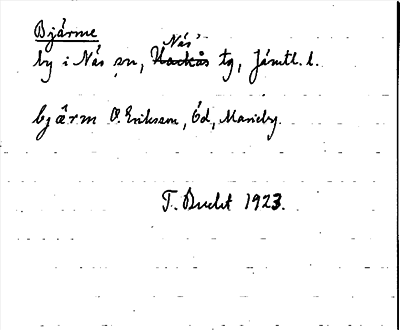 Bjärme
by i Näs sn, Näs tg, Jämtl. l.
bjärm O. Eriksson, Öd, Marieby.
T. Bucht 1923.